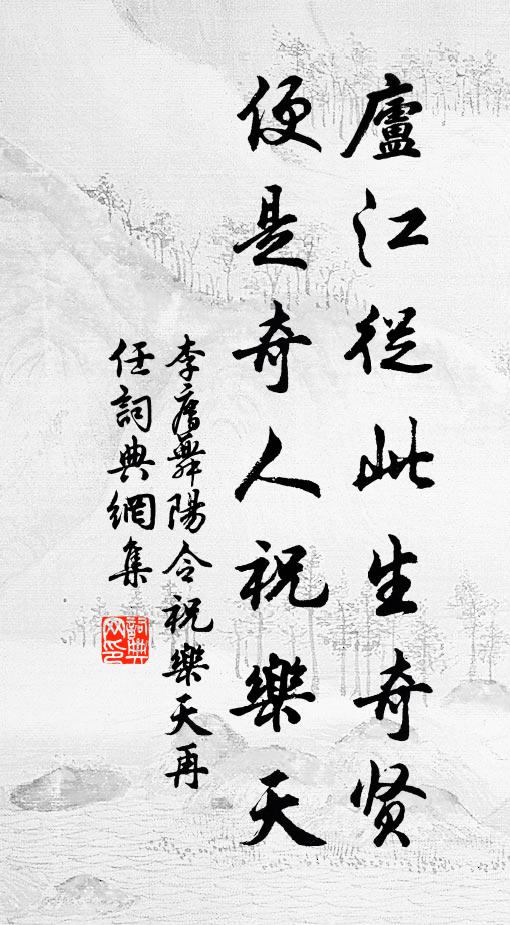 廬江從此生奇贤
便是奇人祝樂天
李膺舞陽令祝樂天再
任詞典網集
詞典
网印